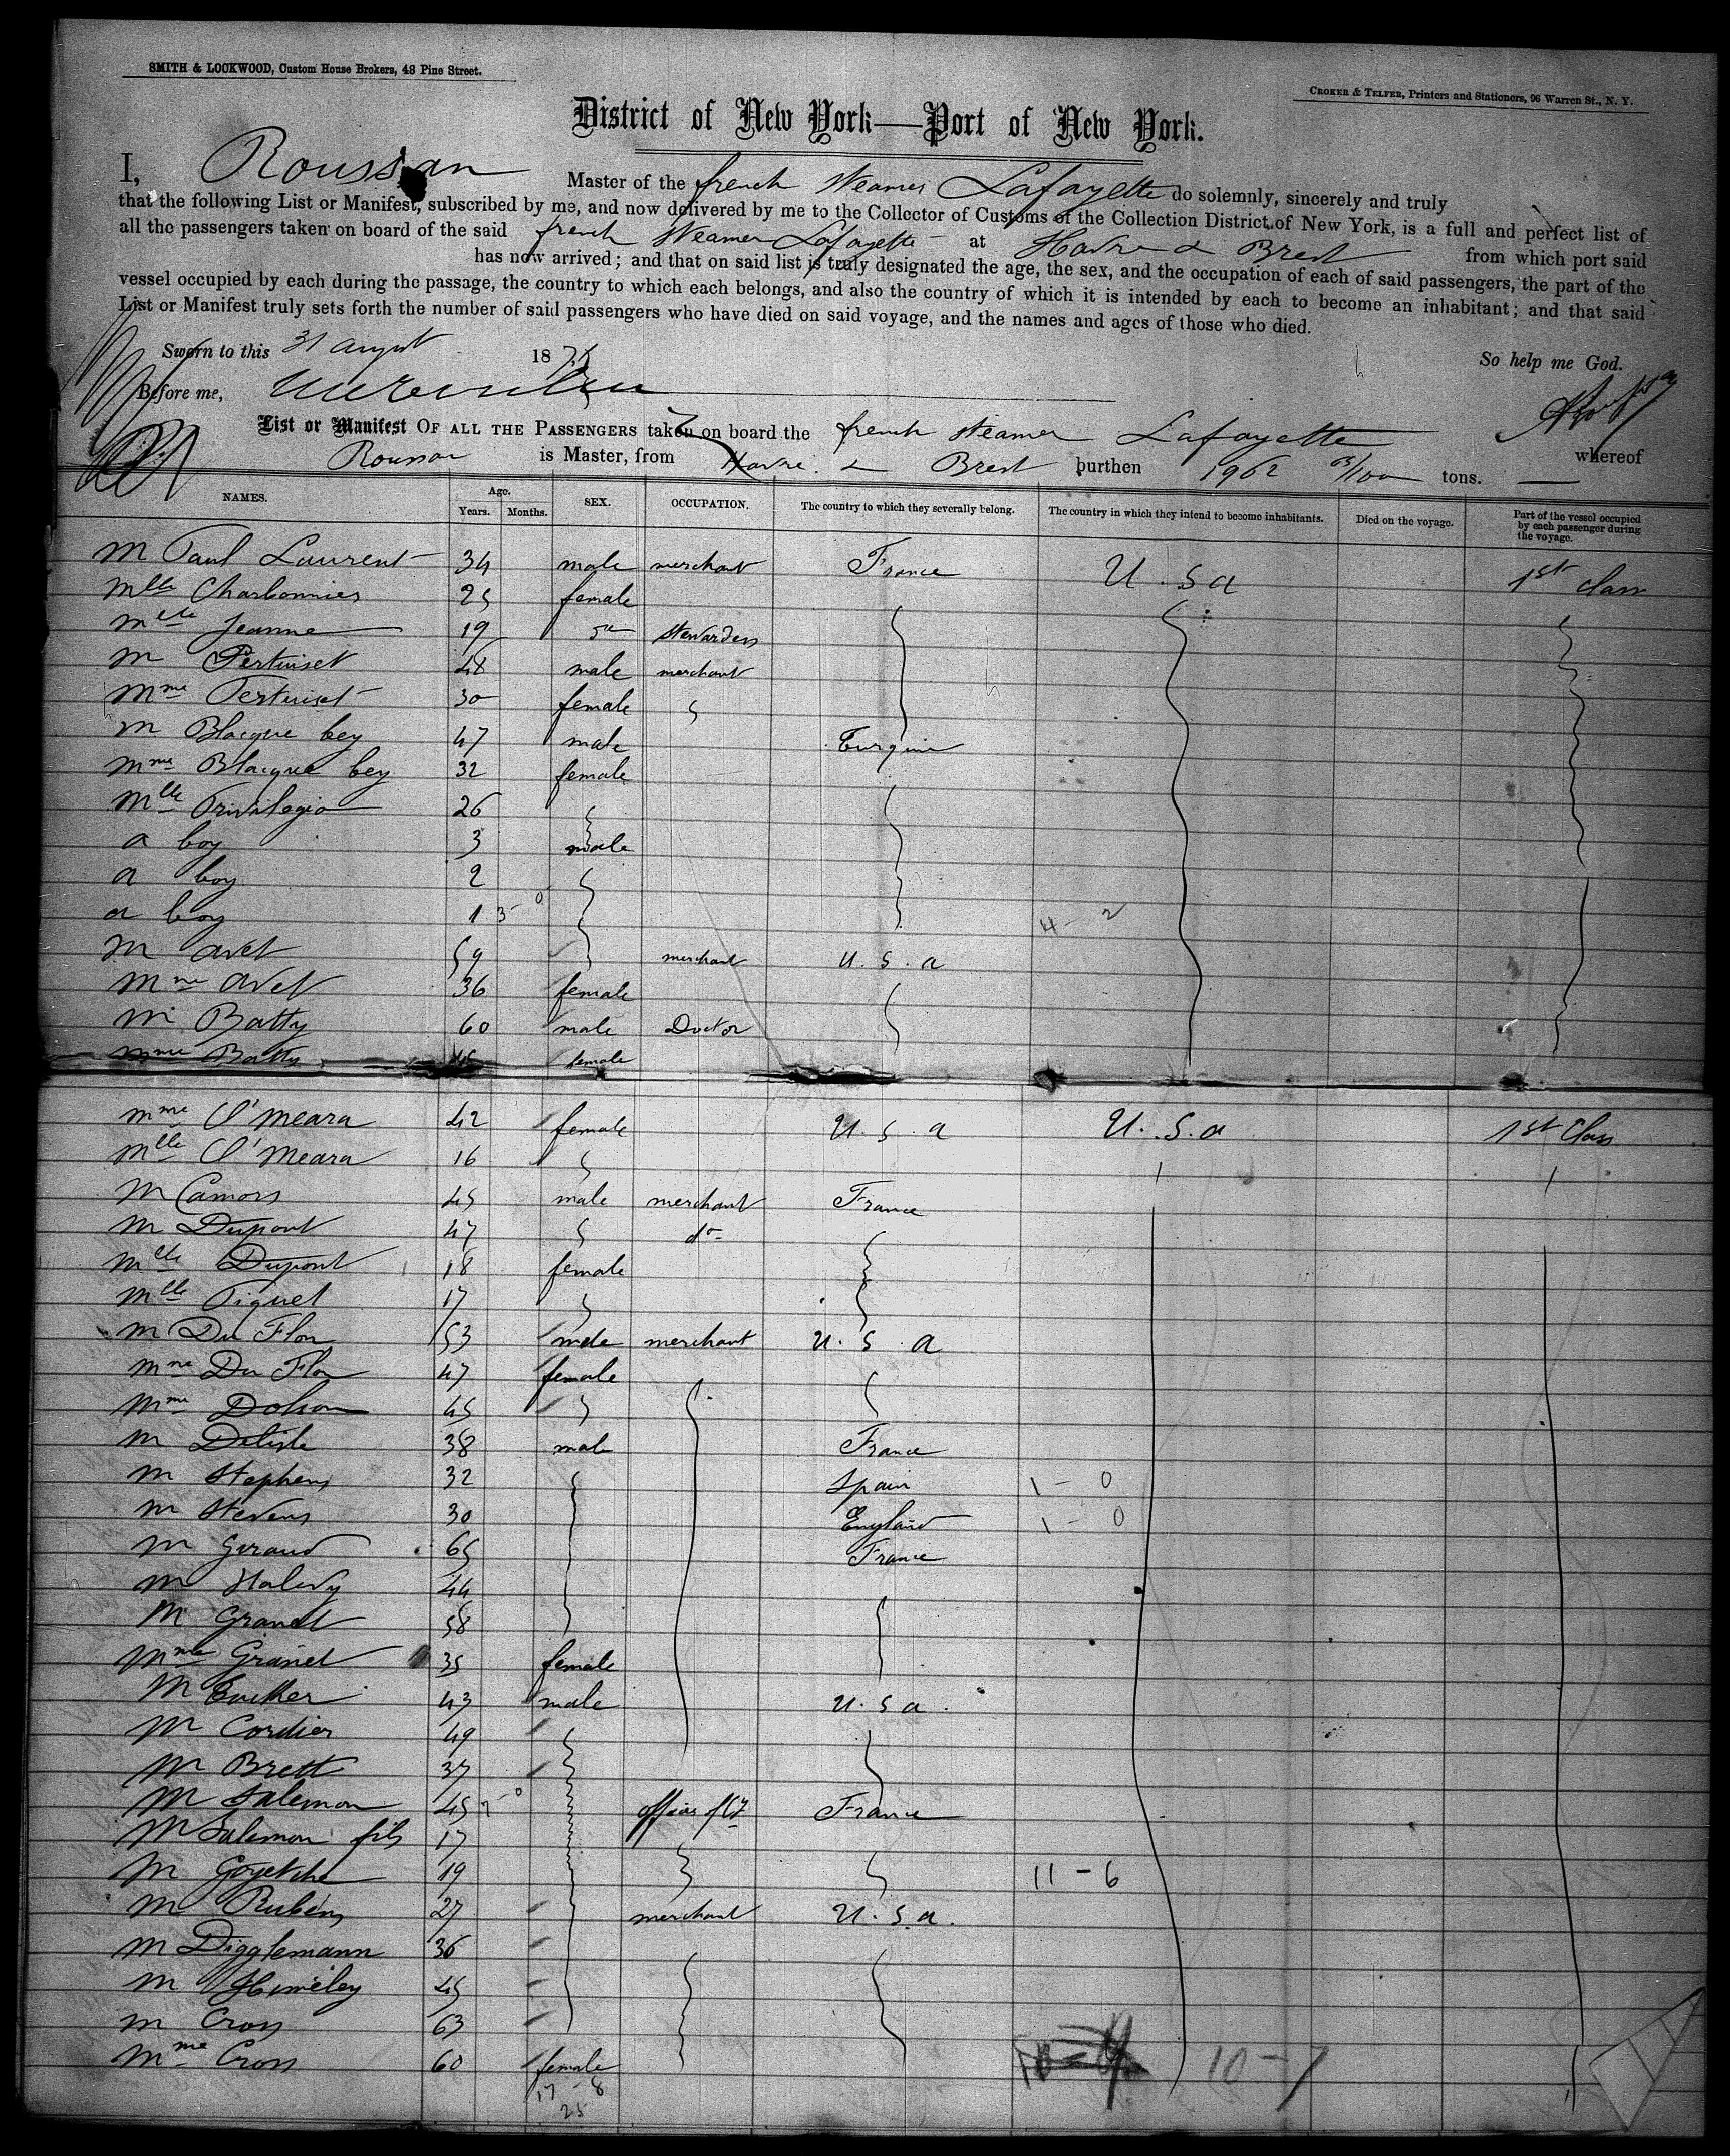 SMITH & LOCKWOOD, Custom House Brokers, 48 Pine Street.
CROKER & TELFER, Printers and Stationers, 96 Warren St., N. Y.
District of New York—Port of New York.
I, Roussan Master of the french steamer Lafayette do solemnly, sincerely and truly
that the following List or Manifest, subscribed by me, and now delivered by me to the Collector of Customs of the Collection District of New York, is a full and perfect list of
all the passengers taken on board of the said french steamer Lafayette at Havre & Brest from which port said
has now arrived; and that on said list is truly designated the age, the sex, and the occupation of each of said passengers, the part of the
vessel occupied by each during the passage, the country to which each belongs, and also the country of which it is intended by each to become an inhabitant; and that said
List or Manifest truly sets forth the number of said passengers who have died on said voyage, and the names and ages of those who died.
Sworn to this 31 august 187 So help me God.
Before me,
List or Manifest OF ALL THE PASSENGERS taken on board the french steamer Lafayette whereof
Roussan is Master, from Havre & Brest burthen 1962 /100 tons.
NAMES. Age. Years. Months. SEX. OCCUPATION. The country to which they severally belong. The country in which they intend to become inhabitants. Died on the voyage. Part of the vessel occupied by each passenger during the voyage.
M Paul Laurent 34 male merchant France U.S.a 1st class
Mlle Charbonnier 25 female
Melle Jeanne 19 stewardess
M Pertuiset 48 male merchant
Mme Pertuiset 30 female
M Blacque bey 47 male Turquie
Mme Blacque bey 32 female
Mlle Privilegio 26
a boy 3 male
a boy 2
a boy 1 3-0 4-2
M Avet 59 merchant U.S.a
Mme Avet 36 female
M Batty 60 male Doctor
Mme Batty female
Mme O'Meara 42 female U.S.a U.S.a 1st Class
Mlle O'Meara 16
M Camors 45 male merchant France
M Dupont 47 do
Mlle Dupont 18 female
Mlle Piquet 17
M Du Flon 53 male merchant U.S.a
Mme Du Flon 47 female
Mme 45
M Delisle 38 male France
M Stephens 32 Spain 1-0
M Stevens 30 England 1-0
M Geraud 65 France
M Halevy 44
M Granet 58
Mme Granet 35 female
M 43 male U.S.a.
M Cordier 49
M Brett 37
M Salemon 45 7-0 France
M Salemon fils 17
M Goyetche 19 11-6
M Rubens 27 merchant U.S.a.
M Digglemann 36
M Himeley 45
M Cross 63
Mme Cross 60 female 10-7
17-8
25